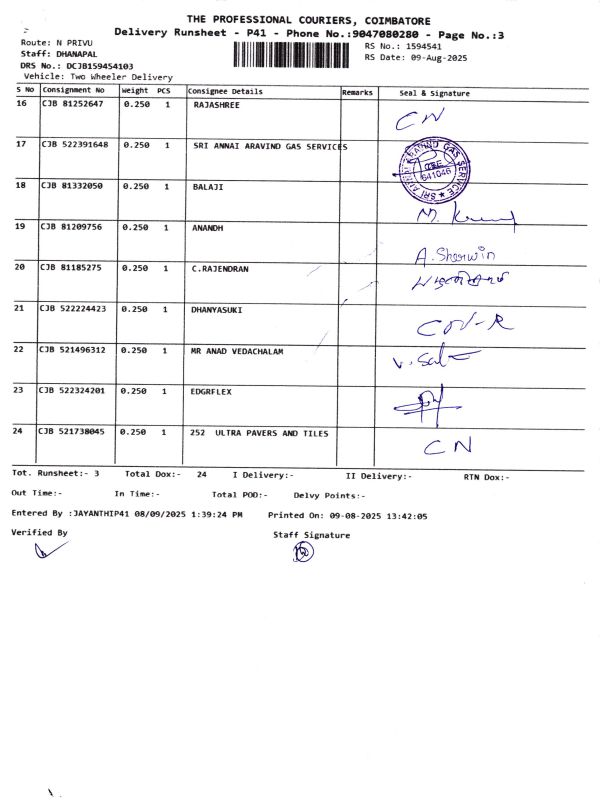 THE PROFESSIONAL COURIERS, COIMBATORE
Delivery Runsheet - P41 - Phone No.:9047080280 - Page No.:3
Route: N PRIVU RS No.: 1594541
Staff: DHANAPAL RS Date: 09-Aug-2025
DRS No.: DCJB159454103
Vehicle: Two Wheeler Delivery
S No Consignment No Weight PCS Consignee Details Remarks Seal & Signature
16 CJB 81252647 0.250 1 RAJASHREE CN
17 CJB 522391648 0.250 1 SRI ANNAI ARAVIND GAS SERVICES 641046
18 CJB 81332050 0.250 1 BALAJI
19 CJB 81209756 0.250 1 ANANDH A. Sherwin
20 CJB 81185275 0.250 1 C.RAJENDRAN
21 CJB 522224423 0.250 1 DHANYASUKI
22 CJB 521496312 0.250 1 MR ANAD VEDACHALAM
23 CJB 522324201 0.250 1 EDGRFLEX
24 CJB 521738045 0.250 1 252 ULTRA PAVERS AND TILES CN
Tot. Runsheet:- 3 Total Dox:- 24 I Delivery:- II Delivery:- RTN Dox:-
Out Time:- In Time:- Total POD:- Delvy Points:-
Entered By :JAYANTHIP41 08/09/2025 1:39:24 PM Printed On: 09-08-2025 13:42:05
Verified By Staff Signature